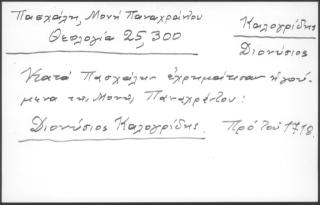 Πασχάλη, Μονή Παναχράντου
Θεολογία 25, 300
Καλογρίδης
Διονύσιος
Κατά Πασχάλην ἐχρημάτισαν ἡγού-
μενοι τῆς Μονῆς Παναχράντου:
Διονύσιος Καλογρίδης. Πρό τοῦ 1718.